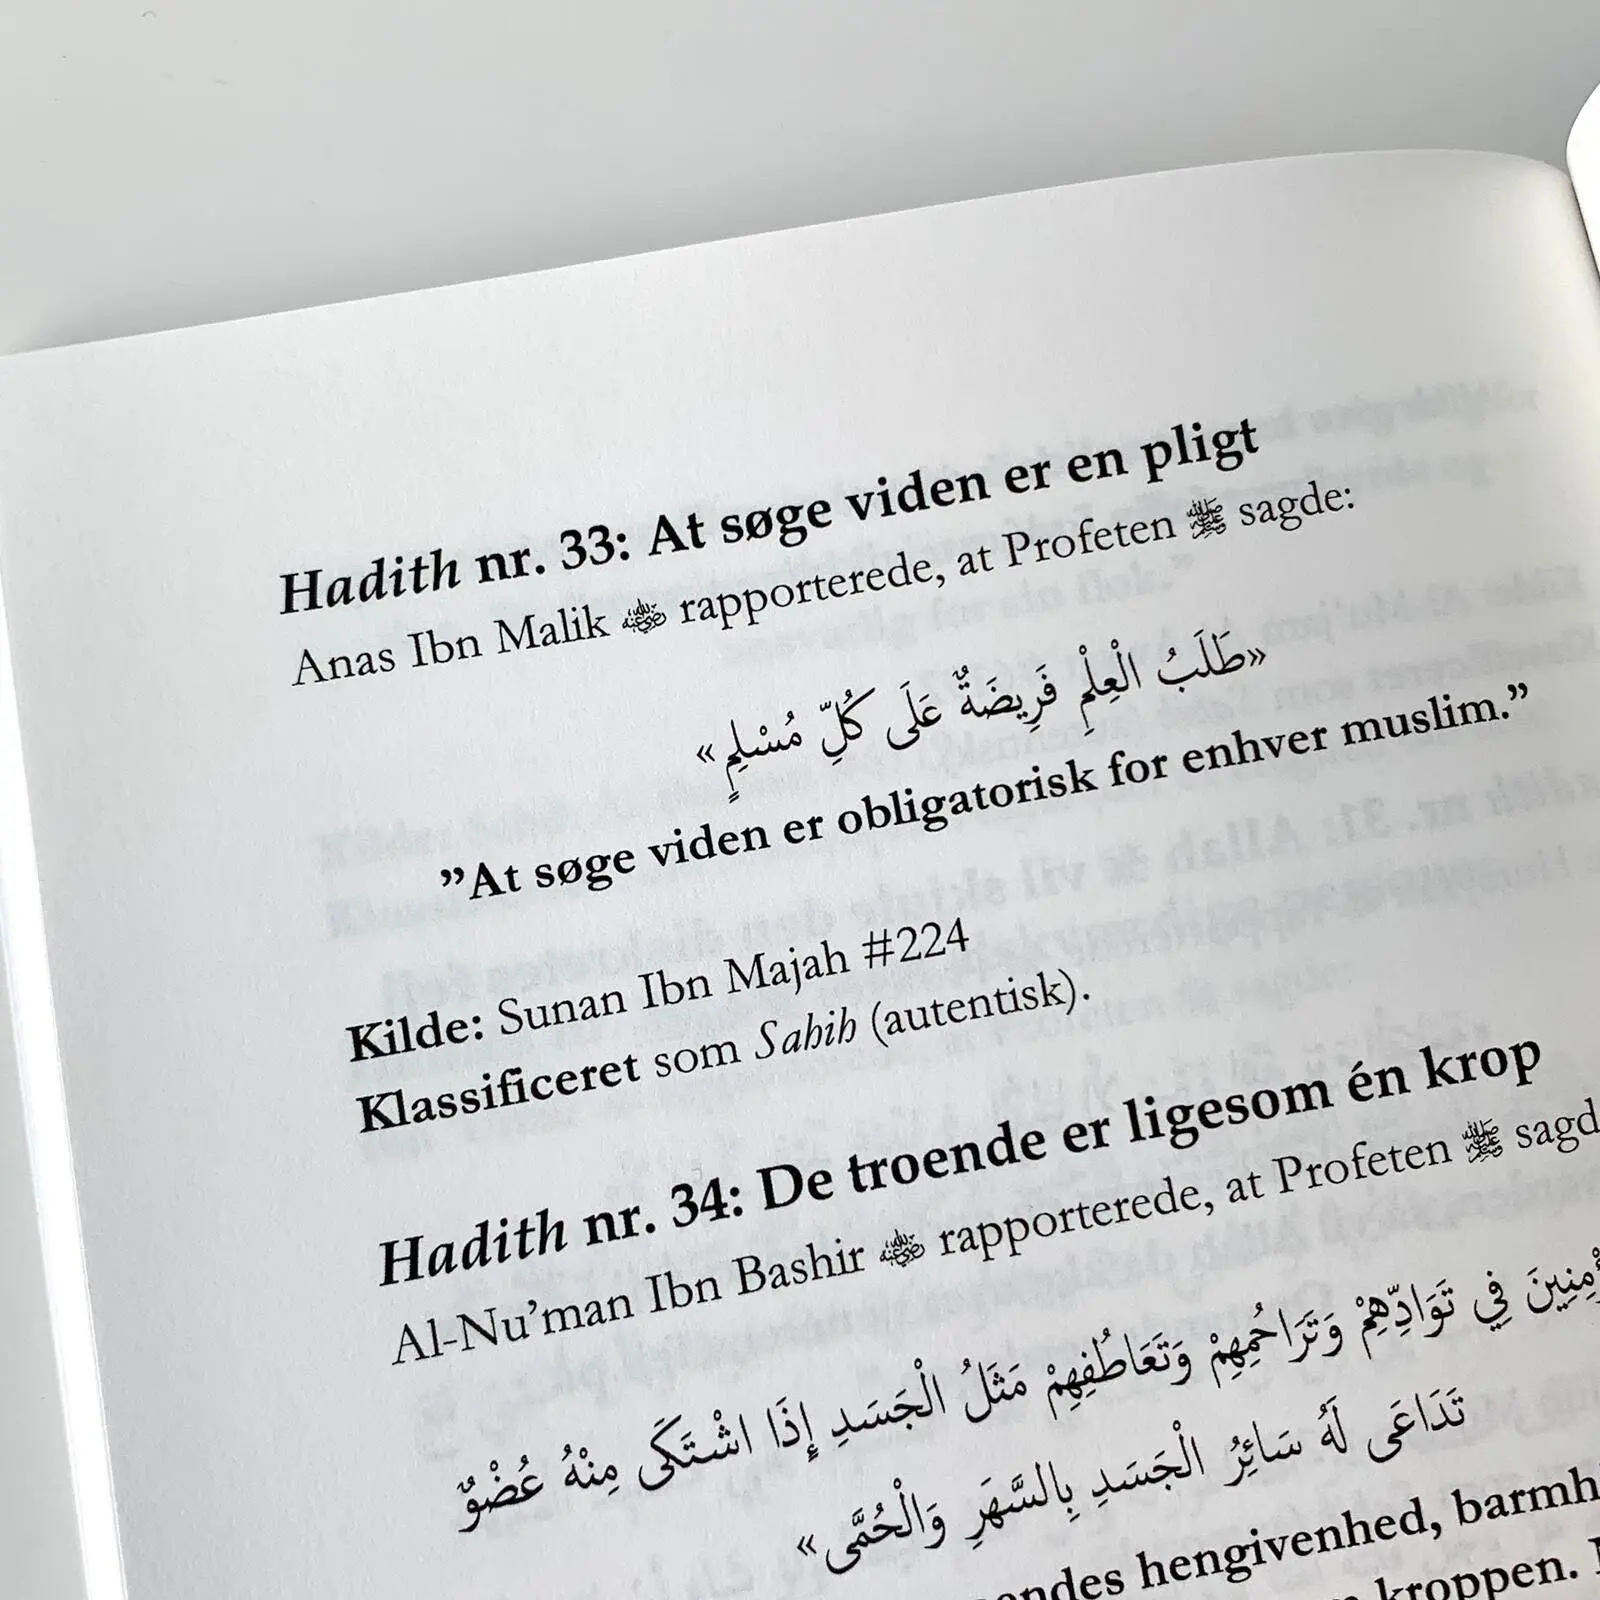 Hadith nr. 33: At søge viden er en pligt
Anas Ibn Malik رضي الله عنه rapporterede, at Profeten ﷺ sagde:
«طَلَبُ الْعِلْمِ فَرِيضَةٌ عَلَى كُلِّ مُسْلِمٍ»
”At søge viden er obligatorisk for enhver muslim.”
Kilde: Sunan Ibn Majah #224
Klassificeret som Sahih (autentisk).
Hadith nr. 34: De troende er ligesom én krop
Al-Nu’man Ibn Bashir رضي الله عنه rapporterede, at Profeten ﷺ sagd
فِي تَوَادِّهِمْ وَتَرَاحُمِهِمْ وَتَعَاطُفِهِمْ مَثَلُ الْجَسَدِ إِذَا اشْتَكَى مِنْهُ عُضْوٌ
تَدَاعَى لَهُ سَائِرُ الْجَسَدِ بِالسَّهَرِ وَالْحُمَّى»
hengivenhed, barmh
kroppen.